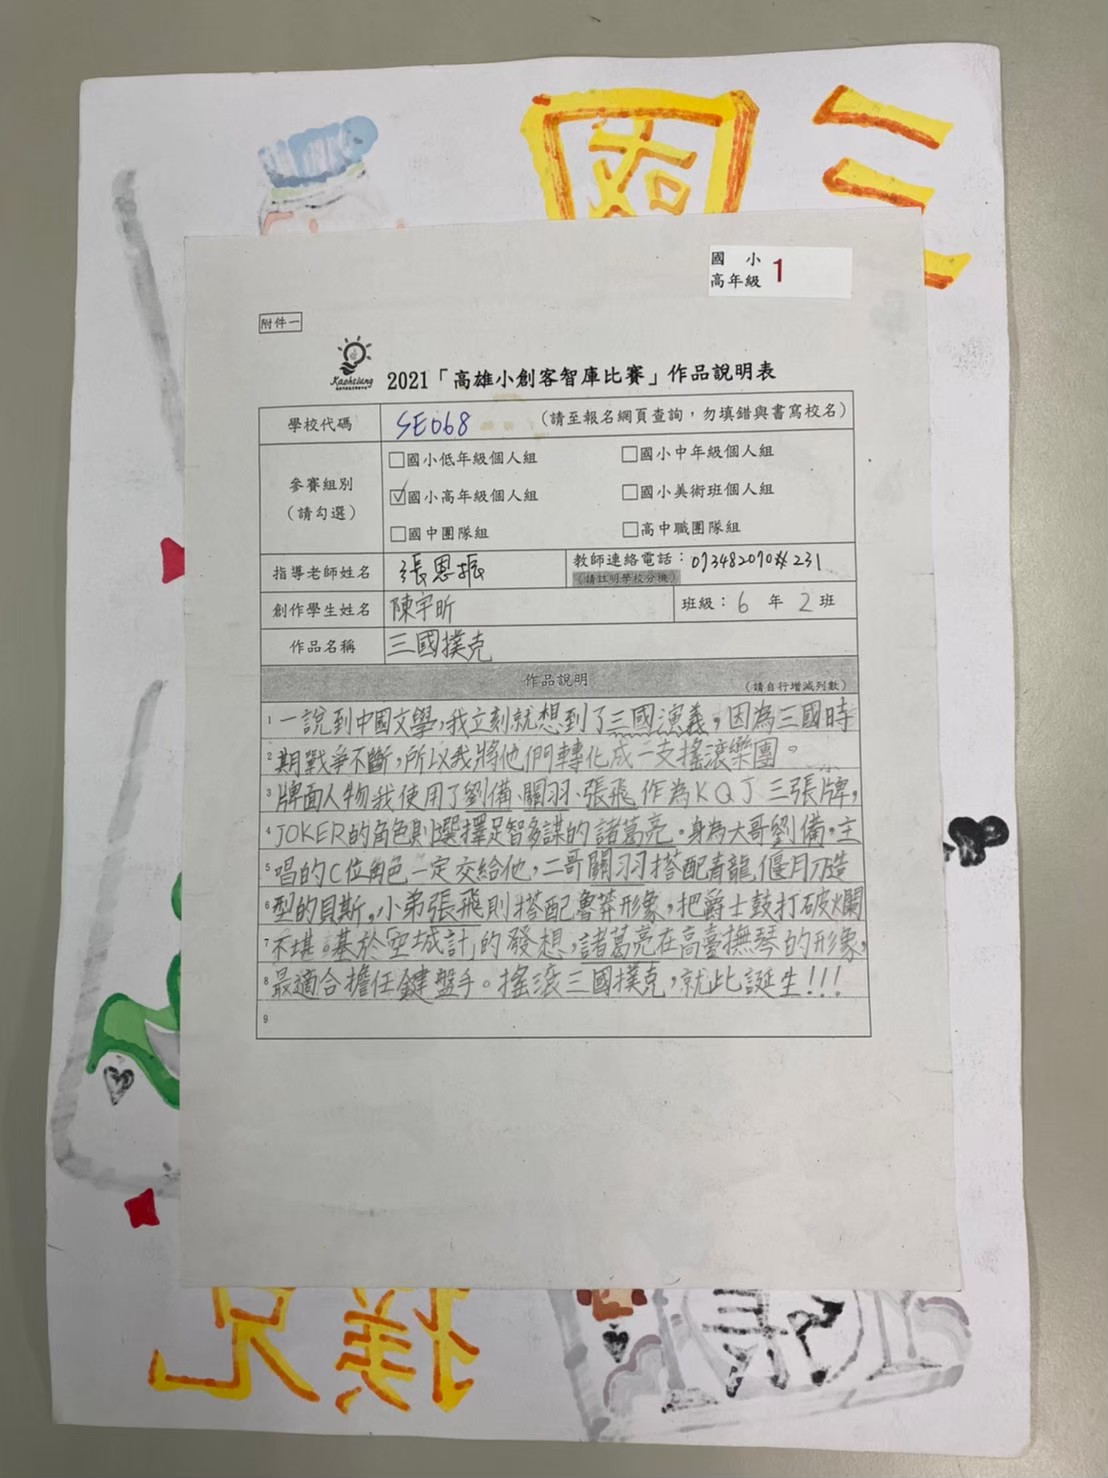 國小
高年級 1
附件一
Kaohsiung
2021「高雄小創客智庫比賽」作品說明表
學校代碼 SE068 (請至報名網頁查詢，勿填錯與書寫校名)
參賽組別
(請勾選)
□國小低年級個人組 □國小中年級個人組
☑國小高年級個人組 □國小美術班個人組
□國中團隊組 □高中職團隊組
指導老師姓名 張恩振 教師連絡電話：073482070#231
(請註明學校分機)
創作學生姓名 陳宇昕 班級：6年2班
作品名稱 三國撲克
作品說明 (請自行增減列數)
1 一說到中國文學，我立刻就想到了三國演義，因為三國時
2 期戰爭不斷，所以我將他們轉化成一支搖滾樂團。
3 牌面人物我使用了劉備、關羽、張飛作為KQJ三張牌，
4 JOKER的角色則選擇足智多謀的諸葛亮。身為大哥劉備，主
5 唱的C位角色一定交給他，二哥關羽搭配青龍偃月刀造
6 型的貝斯，小弟張飛則搭配魯莽形象，把爵士鼓打破爛
7 不堪。基於「空城計」的發想，諸葛亮在高臺撫琴的形象，
8 最適合擔任鍵盤手。搖滾三國撲克，就此誕生!!!
9